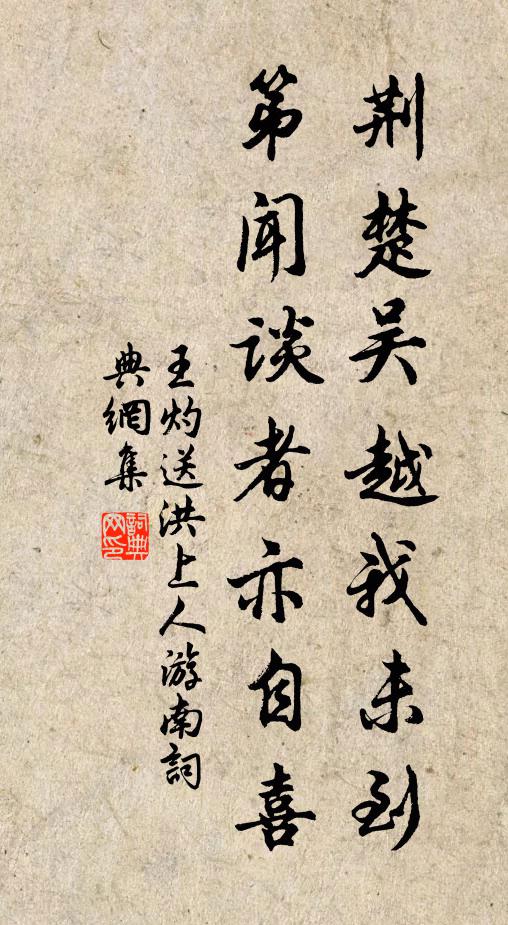 荆楚吴越我未到
第闻谈者亦自喜
王灼送洪上人游南詞
典網集
詞典网印